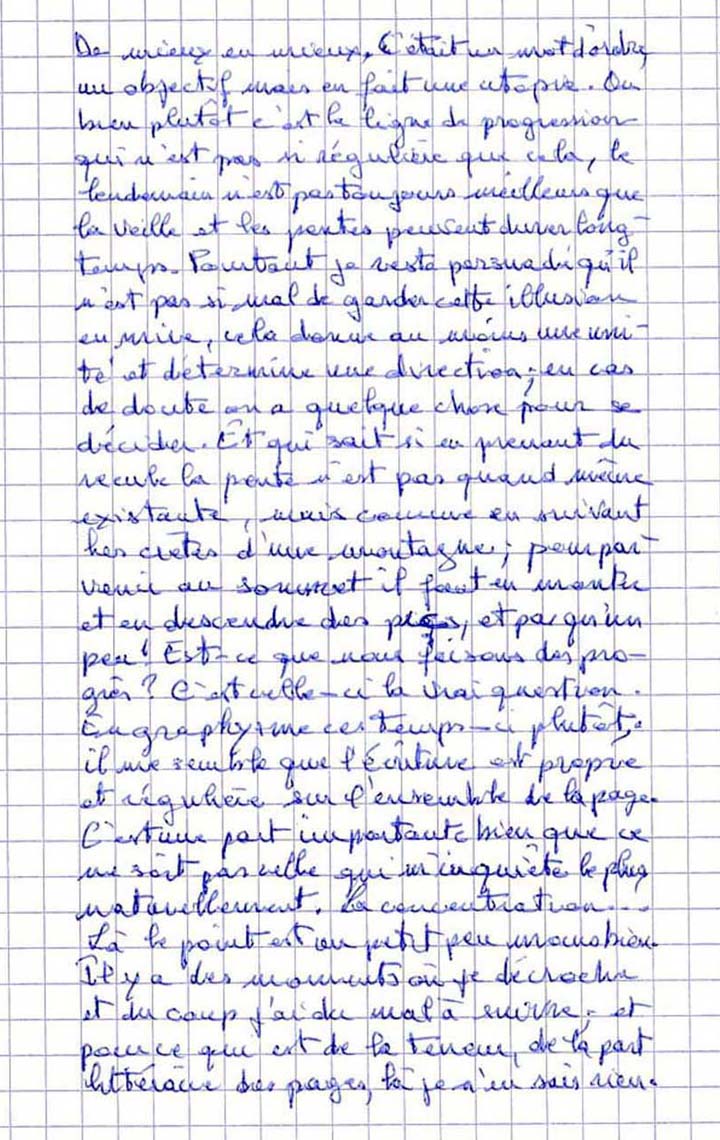 De mieux en mieux. C'était un mot d'ordre,
un objectif mais en fait une utopie. Ou
bien plutôt c'est la ligne de progression
qui n'est pas si régulière que cela, le
lendemain n'est pas toujours meilleurs que
la veille et les pentes peuvent durer long-
temps. Pourtant je reste persuadé qu'il
n'est pas si mal de garder cette illusion
en mire, cela donne au moins une uni-
té et détermine une direction ; en cas
de doute on a quelque chose pour se
décider. Et qui sait si en prenant du
recule la pente n'est pas quand même
existante, mais comme en suivant
les crêtes d'une montagne ; pour par-
venir au sommet il faut en monter
et en descendre des pics, et pas qu'un
peu ! Est-ce que nous faisons des pro-
grès ? C'est celle-ci la vrai question.
En graphysme ces temps-ci plutôt,
il me semble que l'écriture est propre
et régulière sur l'ensemble de la page.
C'est une part importante bien que ce
ne soit pas celle qui m'inquiète le plus
naturellement. La concentration...
Là le point est un petit peu moins bien.
Il y a des moments où je décroche
et du coup j'ai du mal à suivre ; et
pour ce qui est de la teneur, de la part
littéraire des pages, là je n'en sais rien.